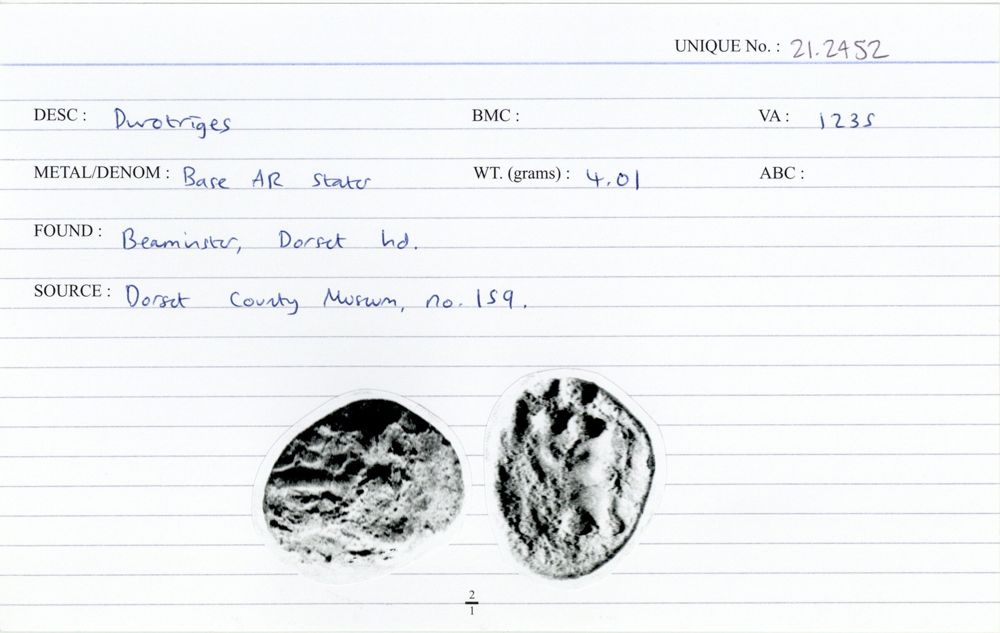 UNIQUE No. : 21.2452
DESC : Durotriges BMC : VA : 1235
METAL/DENOM : Base AR stater WT. (grams) : 4.01 ABC :
FOUND : Beaminster, Dorset hd.
SOURCE : Dorset County Museum, no. 159.
2
1